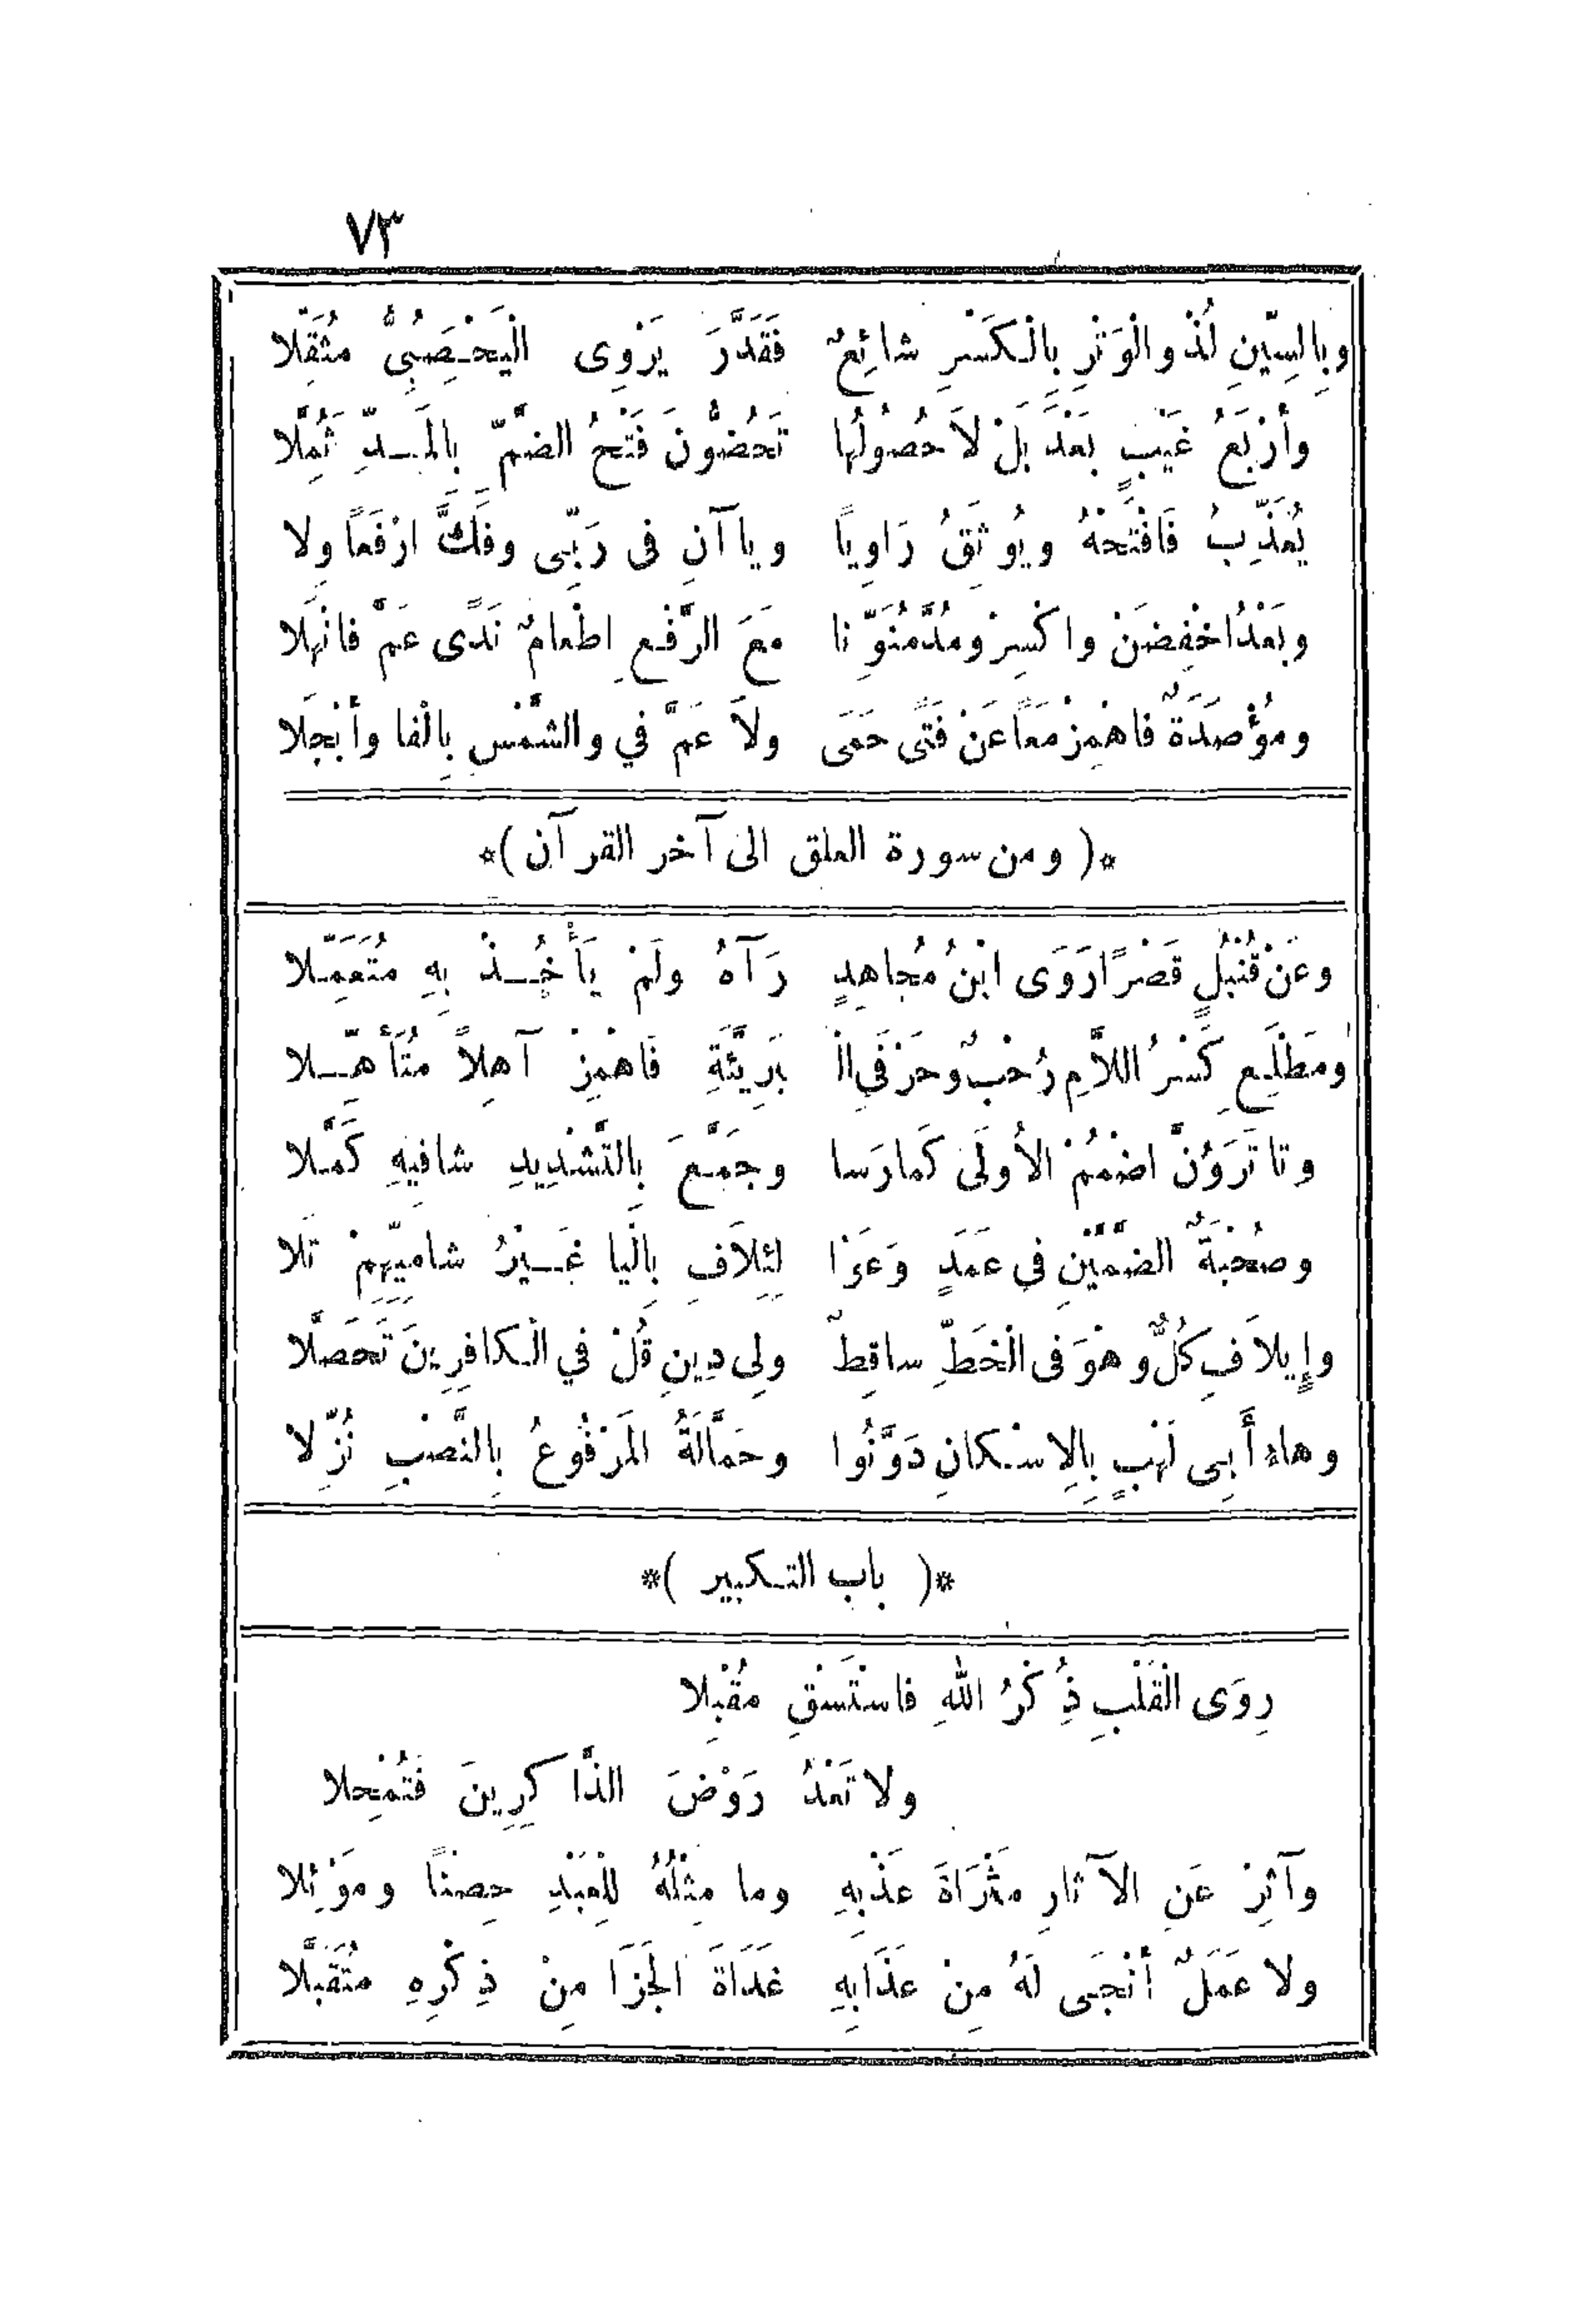 ٧٣
وبِالسِّينِ لُذْ والْوَتْرِ بِالْكَسْرِ شائِعٌ فَقَدَّرَ يَرْوِى الْيَحْصَبِىُّ مُثَقَّلا
وأَرْبَعُ غَيْبٍ بَعْدَ بَلْ لاَ حُصُولُها تَحُضُّونَ فَتْحُ الضَّمِّ بالْمَدِّ ثُمِّلا
يُعَذِّبُ فَافْتَحْهُ ويُوثَقُ رَاوِياً ويا آنِ فى رَبِّى وفَكَّ ارْفَعاً ولا
وبَعْدُ اخْفِضَنْ واكْسِرْ ومُدَّ مُنَوِّنا مَعَ الرَّفْعِ اطْعامٌ نَدًى عَمَّ فانْهَلا
ومُؤْصَدَةٌ فاهْمِزْ مَعاً عَنْ فَتًى حَمَى ولاَ عَمَّ في والشَّمْسِ بِالْفا وأنْجَلا
*( ومن سورة العلق الى آخر القرآن )*
وعَنْ قُنْبُلٍ قَصْرًا رَوَى ابْنُ مُجاهِدٍ رَآهُ ولَمْ يَأْخُذْ بِهِ مُتَعَمِّلا
ومَطْلَعِ كَسْرُ اللاَّمِ رُحْبٌ وحَرْفَىِ الْ بَرِيَّئَةِ فَاهْمِزْ آهِلاً مُتَأَهِّلا
وتا تَرَوُنَّ اضْمُمْ الأُولَى كَما رَسا وجَمَّعَ بِالتَّشْدِيدِ شافِيهِ كَمَّلا
وصُحْبَةٌ الضَّمَّيْنِ فِى عَمَدٍ وَعَوْا لِئِلاَفِ بِالْيا غَيْرُ شامِيِّهِمْ تَلا
وإِيلاَفِ كُلٌّ وهْوَ فى الْخَطِّ ساقِطٌ ولِى دِينِ قُلْ في الْكافِرِينَ تَحَصَّلا
وهاءُ أَبِى لَهْبٍ بِالِاسْكانِ دَوَّنُوا وحَمَّالَةُ الْمَرْفُوعُ بِالنَّصْبِ نُزِّلا
*( باب التكبير )*
رِوَى الْقَلْبِ ذِكْرُ اللهِ فاسْتَسْقِ مُقْبِلا
ولا تَعْدُ رَوْضَ الذَّاكِرِينَ فَتُمْحِلا
وآثِرْ عَنِ الآثارِ مَثْرَاةَ عَذْبِهِ وما مِثْلُهُ لِلْعَبْدِ حِصْناً ومَوْئِلا
ولا عَمَلٌ أَنْجَى لَهُ مِنْ عَذَابِهِ غَدَاةَ الْجَزَا مِنْ ذِكْرِهِ مُتَقَبَّلا